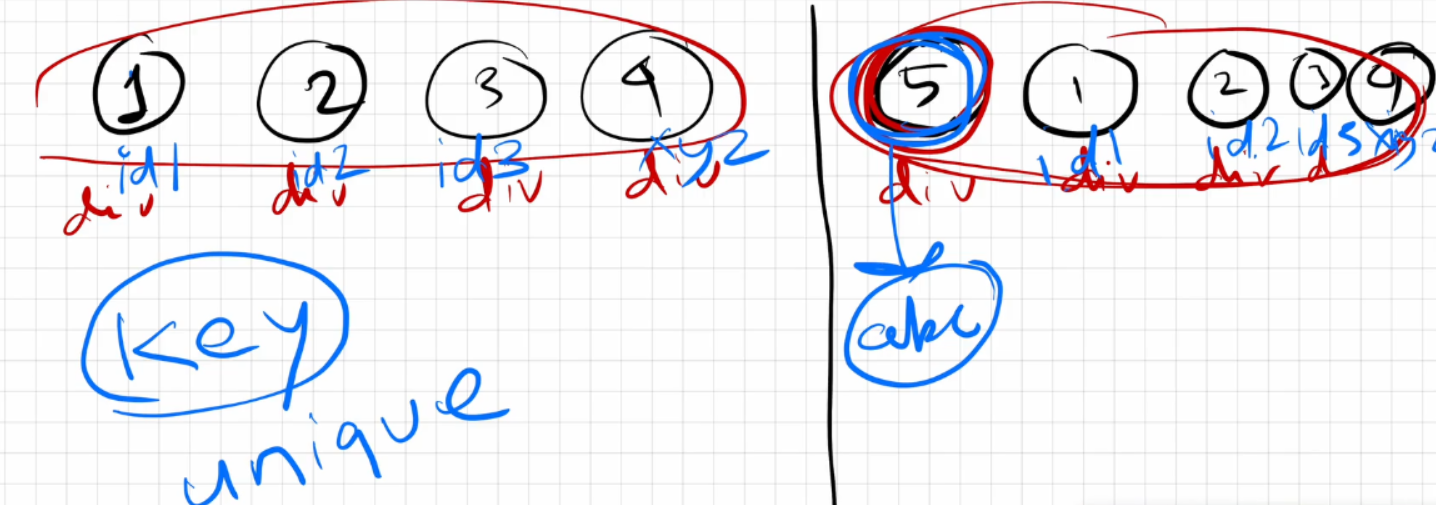 1 2 3 4
id1 id2 id3 xyz
div div div div
key
unique
5 1 2 3 4
id1 id2 id3 xyz
div div div d
abc